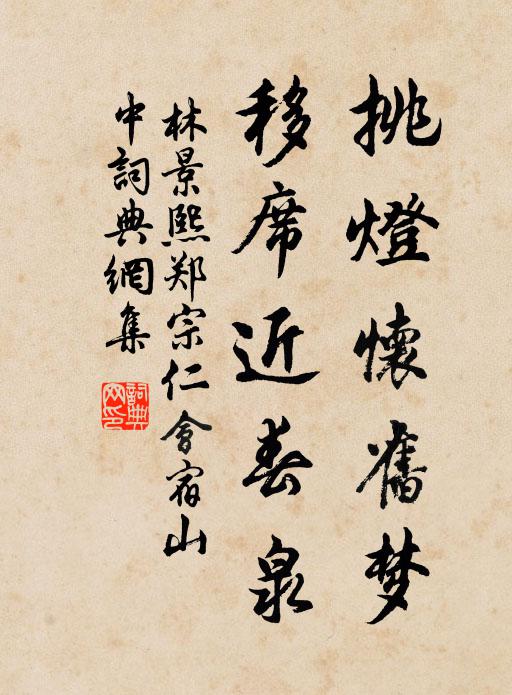 挑燈懷舊梦
移席近春泉
林景熙郑宗仁會宿山
中詞典網集
詞典网印